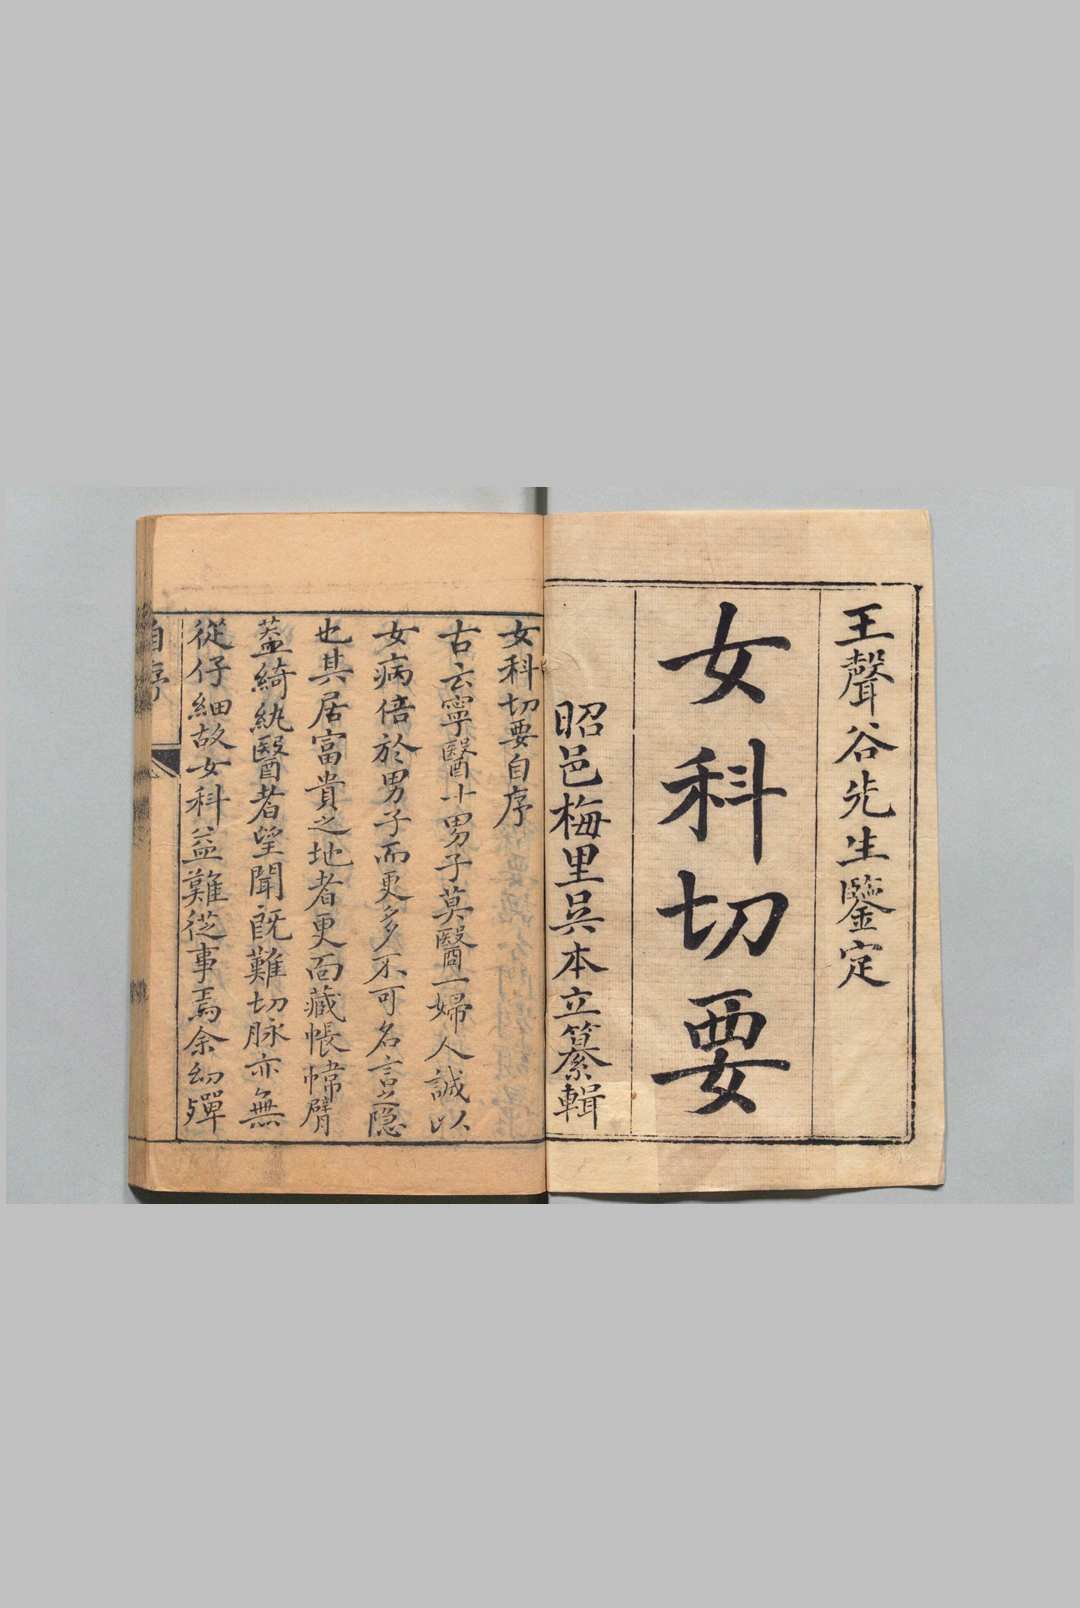 王聲谷先生鑒定
女科切要
昭邑梅里吳本立纂輯
女科切要自序
古云寧醫十男子莫醫一婦人誠以
女病倍於男子而更多不可名言之隐
也其居富貴之地者更面藏帳幃臂
蓋綺紈醫者望聞既難切脉亦無
從仔細故女科益難從事焉余幼殫
自序